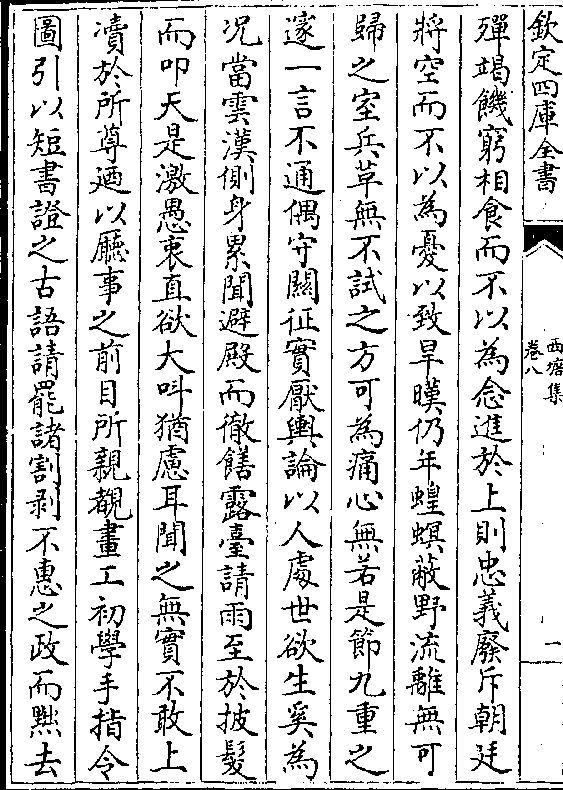 欽定四庫全書
西塘集
卷八
一
殫竭饑窮相食而不以為念進於上則忠義廢斥朝廷
將空而不以為憂以致旱暵仍年蝗螟蔽野流離無可
歸之室兵草無不試之方可為痛心無若是節九重之
邃一言不通偶守關征實厭輿論以人處世欲生奚為
况當雲漢側身累聞避殿而徹饍露臺請雨至於披髮
而叩天是激愚衷直欲大呌猶慮耳聞之無實不敢上
瀆於所尊廼以廳事之前目所親覩畫工初學手指令
圖引以短書證之古語請罷諸割剥不惠之政而黜去